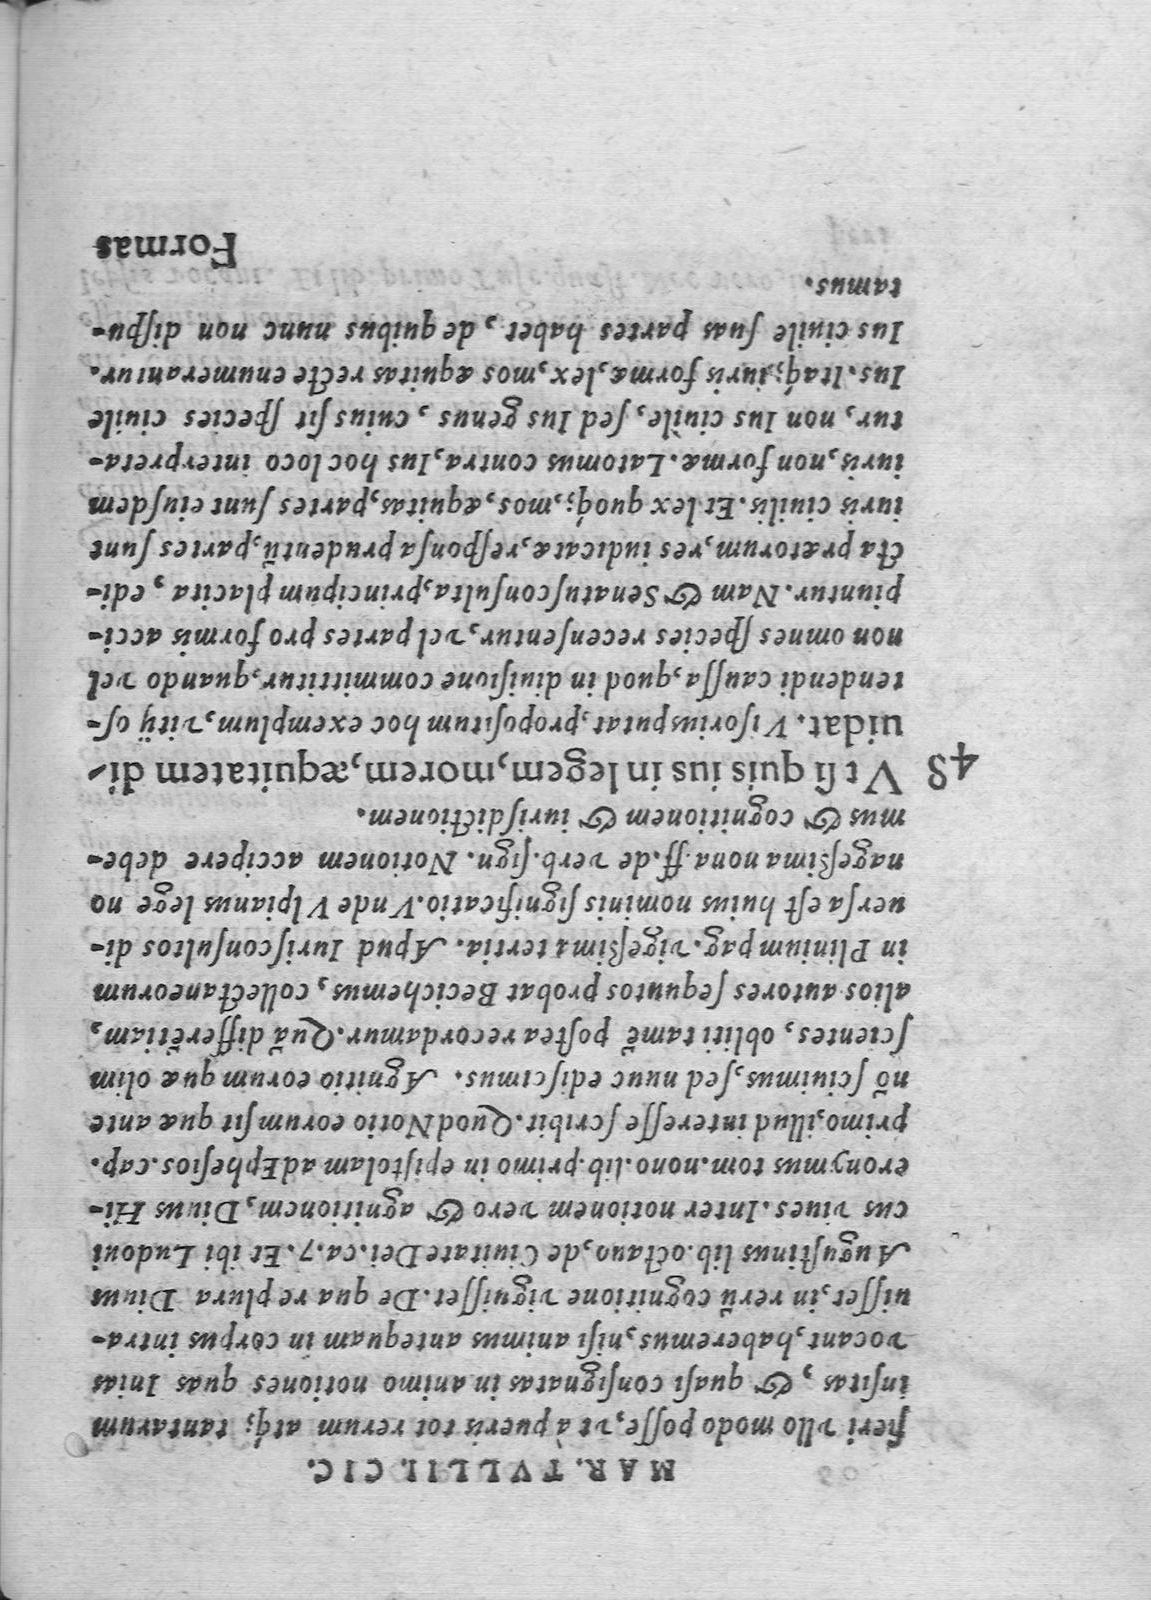 MAR. TVLLII. CIC.
fieri vllo modo posse, vt à pueris tot rerum atq́; tantarum
insitas, & quasi consignatas in animo notiones quas Inias
vocant, haberemus, nisi animus antequam in corpus intra-
uisset, in rerū cognitione viguisset. De qua re plura Diuus
Augustinus lib. octauo, de Ciuitate Dei. ca. 7. Et ibi Ludoui
cus viues. Inter notionem vero & agnitionem, Diuus Hi-
eronymus tom. nono. lib. primo in epistolam ad Ephesios. cap.
primo, illud interesse scribit. Quod Notio eorum sit quæ ante
nō sciuimus, sed nunc ediscimus. Agnitio eorum quæ olim
scientes, obliti tamē postea recordamur. Quā differētiam,
alios autores sequutos probat Becichemus, collectaneorum
in Plinium pag. vigeßima tertia. Apud Iurisconsultos di-
uersa est huius nominis significatio. Vnde Vlpianus lege no
nageßima nona ff. de verb. sign. Notionem accipere debe-
mus & cognitionem & iurisdictionem.
48 Vt si quis ius in legem, morem, æquitatem di-
uidat. Visorius putat, propositum hoc exemplum, vitij os-
tendendi caussa, quod in diuisione committitur, quando vel
non omnes species recensentur, vel partes pro formis acci-
piuntur. Nam & Senatusconsulta, principum placita, edi-
cta prætorum, res iudicatæ, responsa prudentū, partes sunt
iuris ciuilis. Et lex quoq́;, mos, æquitas, partes sunt eiusdem
iuris, non formæ. Latomus contra, Ius hoc loco interpreta-
tur, non Ius ciuile, sed Ius genus, cuius sit species ciuile
Ius. Itaq́; iuris formæ, lex, mos æquitas recte enumerantur.
Ius ciuile suas partes habet, de quibus nunc non dispu-
tamus.
Formas